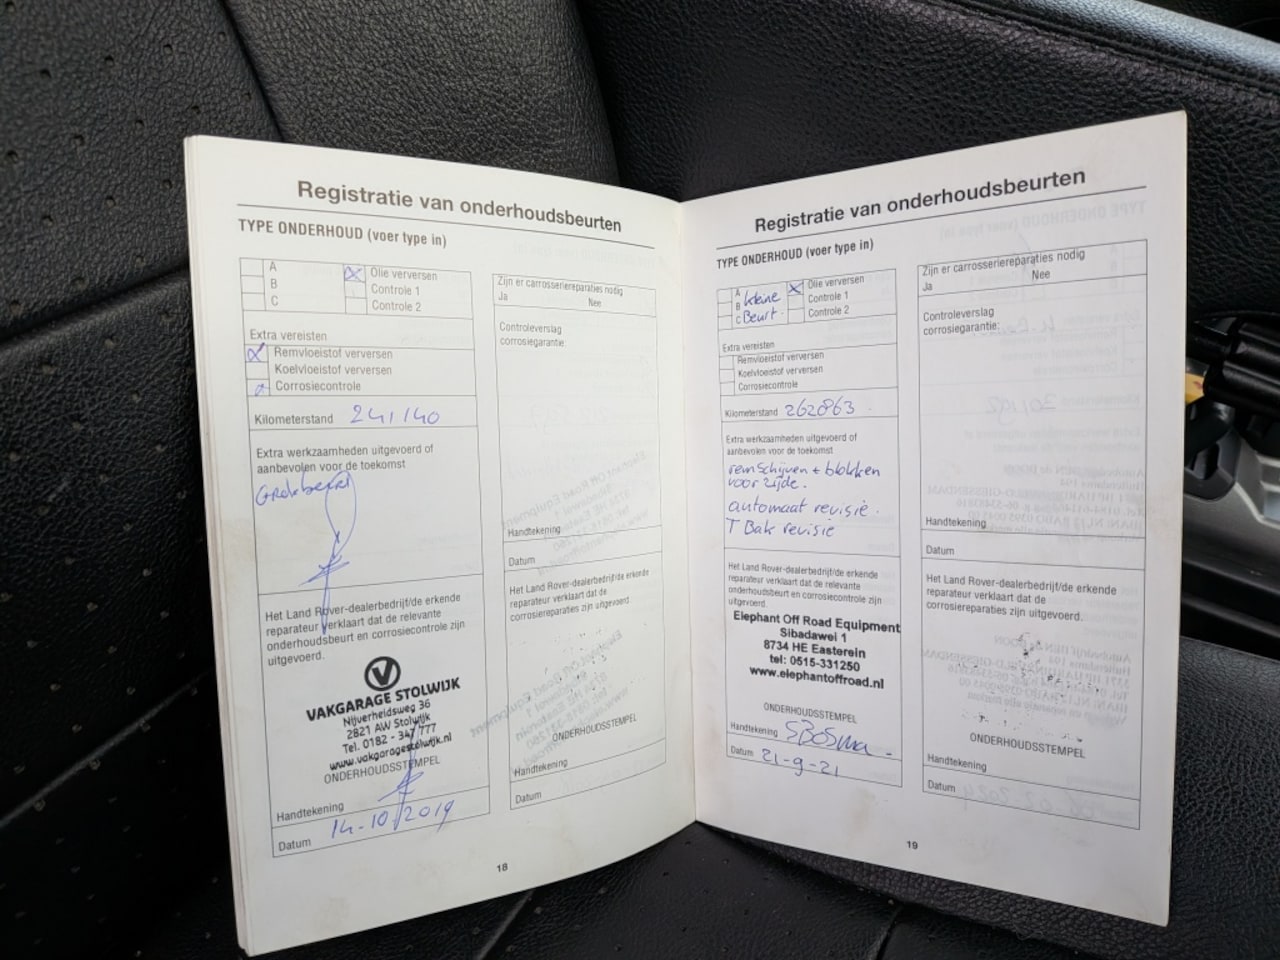 Registratie van onderhoudsbeurten
TYPE ONDERHOUD (voer type in)
A
B
C
Olie verversen
Controle 1
Controle 2
Extra vereisten
Remvloeistof verversen
Koelvloeistof verversen
Corrosiecontrole
Kilometerstand 241140
Extra werkzaamheden uitgevoerd of
aanbevolen voor de toekomst
Het Land Rover-dealerbedrijf/de erkende
reparateur verklaart dat de relevante
onderhoudsbeurt en corrosiecontrole zijn
uitgevoerd.
VAKGARAGE STOLWIJK
Nijverheidsweg 36
2821 AW Stolwijk
Tel. 0182 - 347 777
www.vakgaragestolwijk.nl
ONDERHOUDSSTEMPEL
Handtekening
Datum 14-10-2019
Zijn er carrosseriereparaties nodig
Ja Nee
Controleverslag
corrosiegarantie:
Handtekening
Datum
Het Land Rover-dealerbedrijf/de erkende
reparateur verklaart dat de
corrosiereparaties zijn uitgevoerd.
ONDERHOUDSSTEMPEL
Handtekening
Datum
18
Registratie van onderhoudsbeurten
TYPE ONDERHOUD (voer type in)
A
B kleine
C Beurt.
Olie verversen
Controle 1
Controle 2
Extra vereisten
Remvloeistof verversen
Koelvloeistof verversen
Corrosiecontrole
Kilometerstand 262863.
Extra werkzaamheden uitgevoerd of
aanbevolen voor de toekomst
remschijven + blokken
voorzijde.
automaat revisie.
T Bak revisie
Het Land Rover-dealerbedrijf/de erkende
reparateur verklaart dat de relevante
onderhoudsbeurt en corrosiecontrole zijn
uitgevoerd.
Elephant Off Road Equipment
Sibadawei 1
8734 HE Easterein
tel: 0515-331250
www.elephantoffroad.nl
ONDERHOUDSSTEMPEL
Handtekening SBosma
Datum 21-9-21
Zijn er carrosseriereparaties nodig
Ja Nee
Controleverslag
corrosiegarantie:
Handtekening
Datum
Het Land Rover-dealerbedrijf/de erkende
reparateur verklaart dat de
corrosiereparaties zijn uitgevoerd.
ONDERHOUDSSTEMPEL
Handtekening
Datum
19